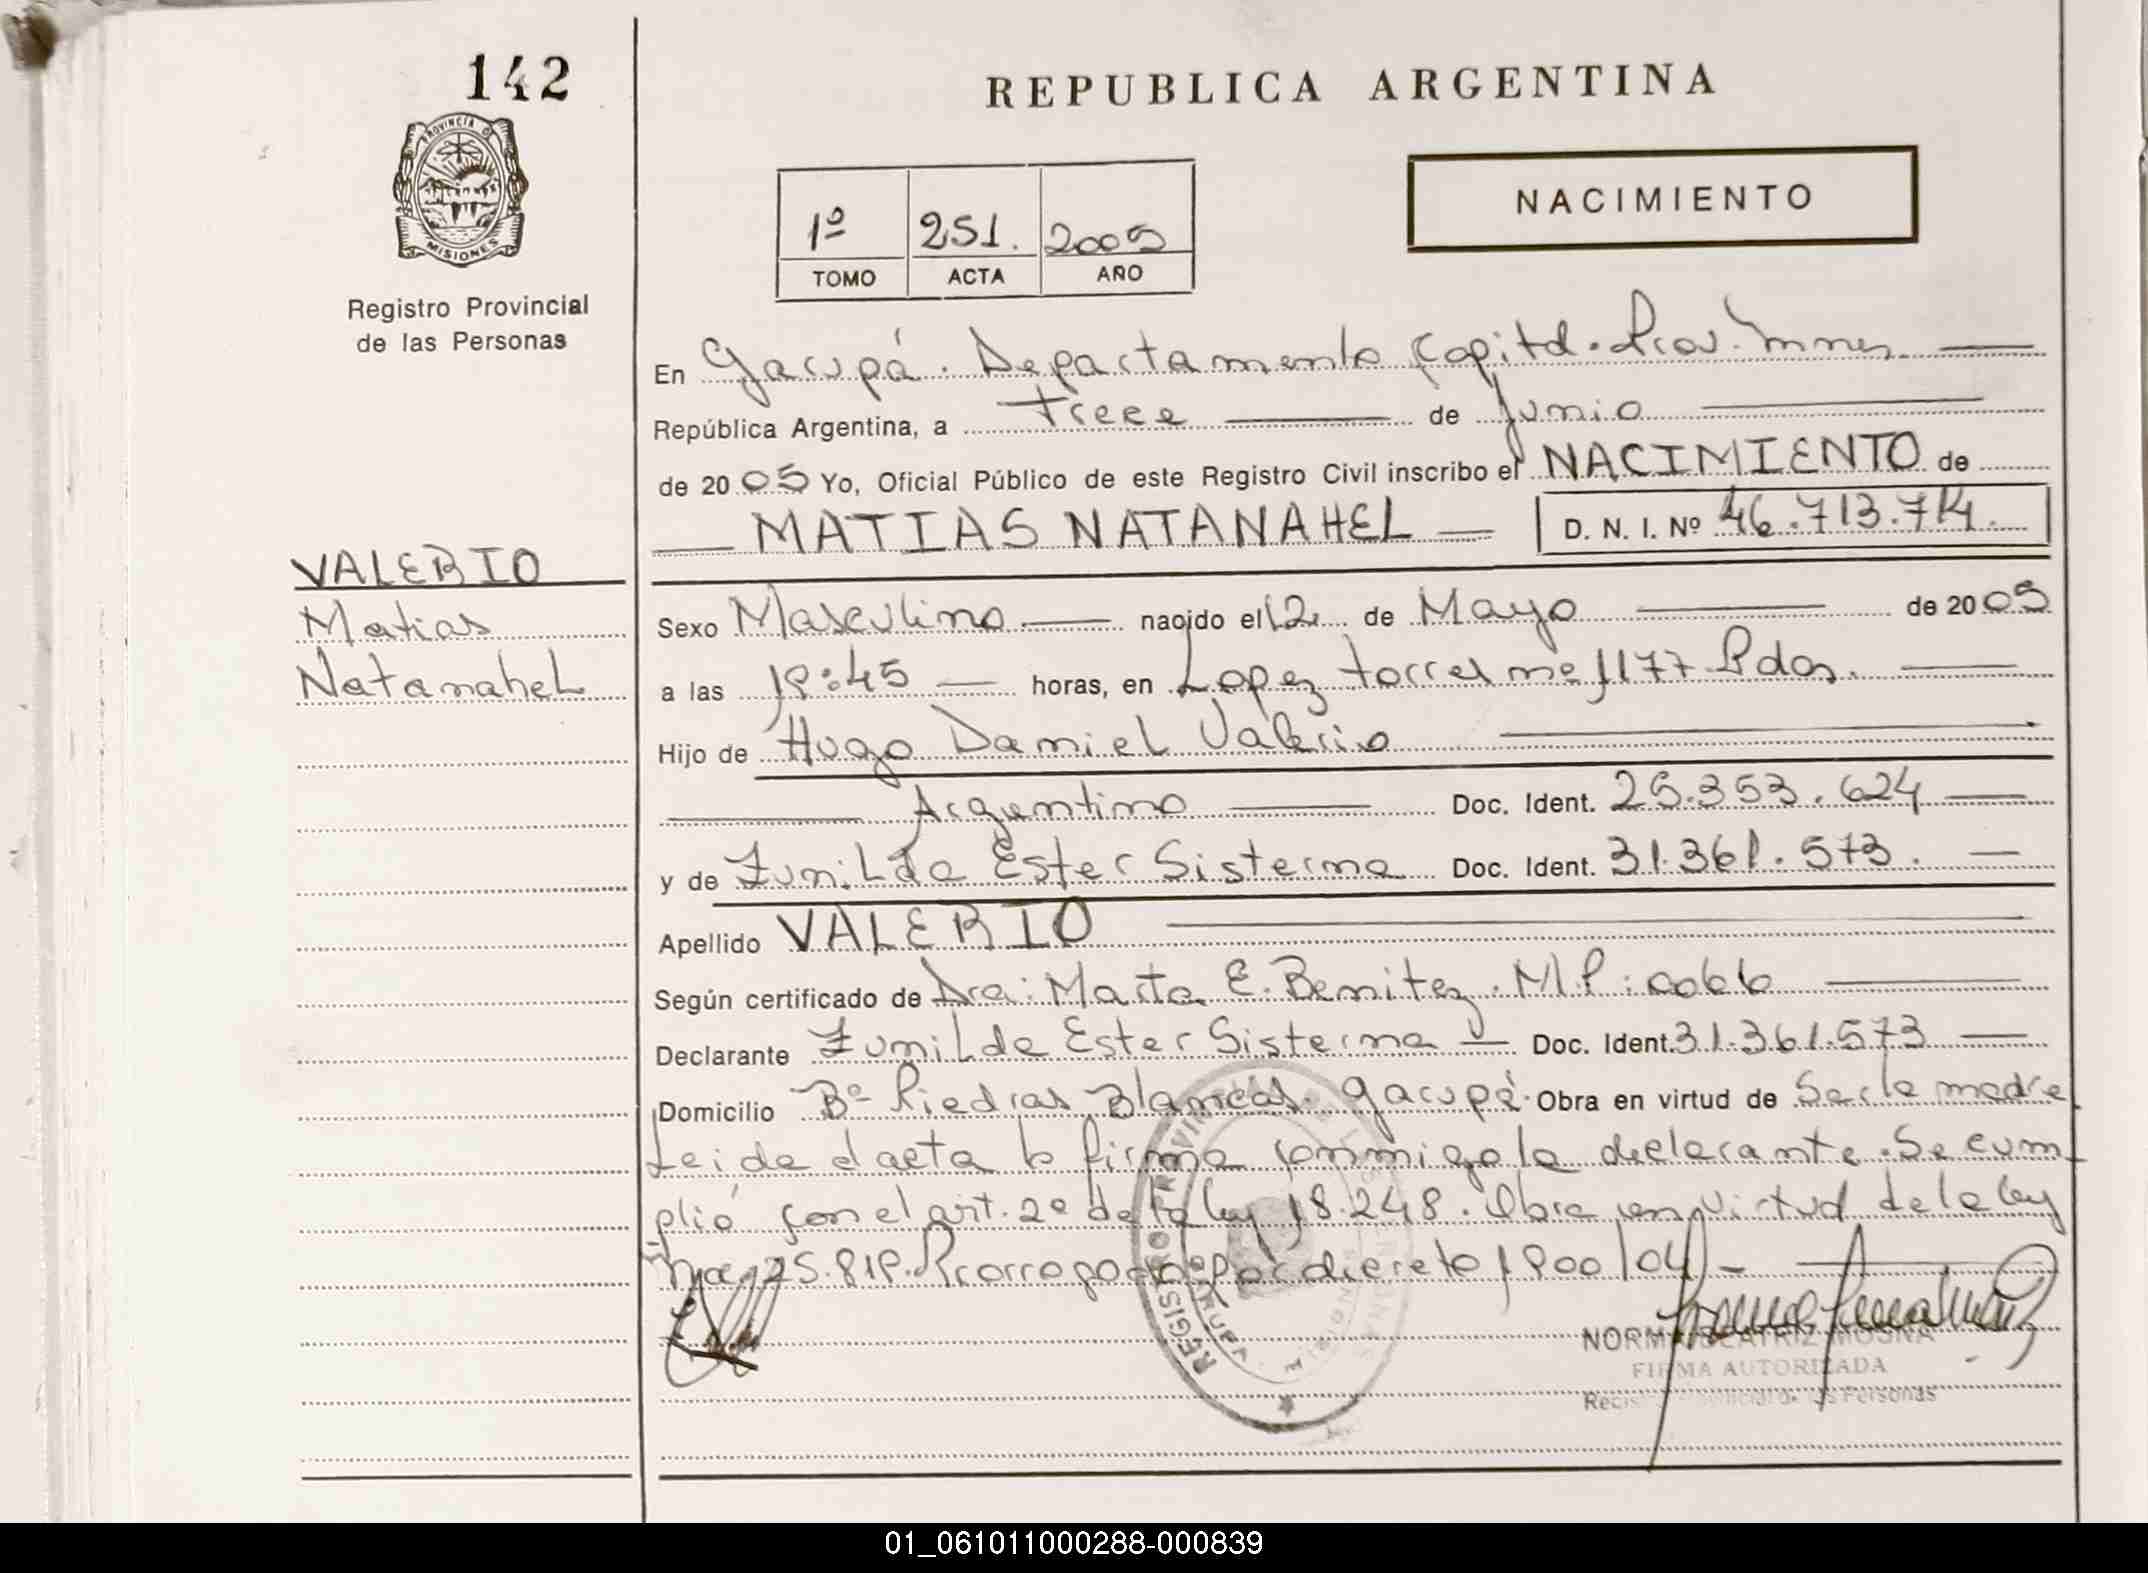 142
REPUBLICA ARGENTINA
PROVINCIA D
MISIONES
Registro Provincial
de las Personas
NACIMIENTO
1º 251. 2005
TOMO ACTA AÑO
En Garupá. Departamento Capital. Prov. Mnes.
República Argentina, a trece de Junio
de 2005 Yo, Oficial Público de este Registro Civil inscribo el NACIMIENTO de
MATIAS NATANAHEL D. N. I. Nº 46.713.714.
VALERIO
Matias
Natanahel
Sexo Masculino nacido el 12 de Mayo de 2005
a las 19:45 horas, en Lopez torres nº 1177 Pdas.
Hijo de Hugo Daniel Valerio
Argentino Doc. Ident. 25.353.624
y de Zunilda Ester Sisterna Doc. Ident. 31.361.573.
Apellido VALERIO
Según certificado de Dra: Marta E. Benitez. M.P: 0066
Declarante Zunilda Ester Sisterna Doc. Ident. 31.361.573
Domicilio Bº Piedras Blancas. Garupá. Obra en virtud de Ser la madre
Leida el acta la firma conmigo la declarante. Se cum
plió con el art. 2º de la ley 18.248. Obra en virtud de la ley
Nac. 25.819. Prorrogado por decreto 1900/04
REGISTRO PROVINCIAL DE LAS PERSONAS
NORMA BEATRIZ MOSNA
FIRMA AUTORIZADA
Personas
01_061011000288-000839